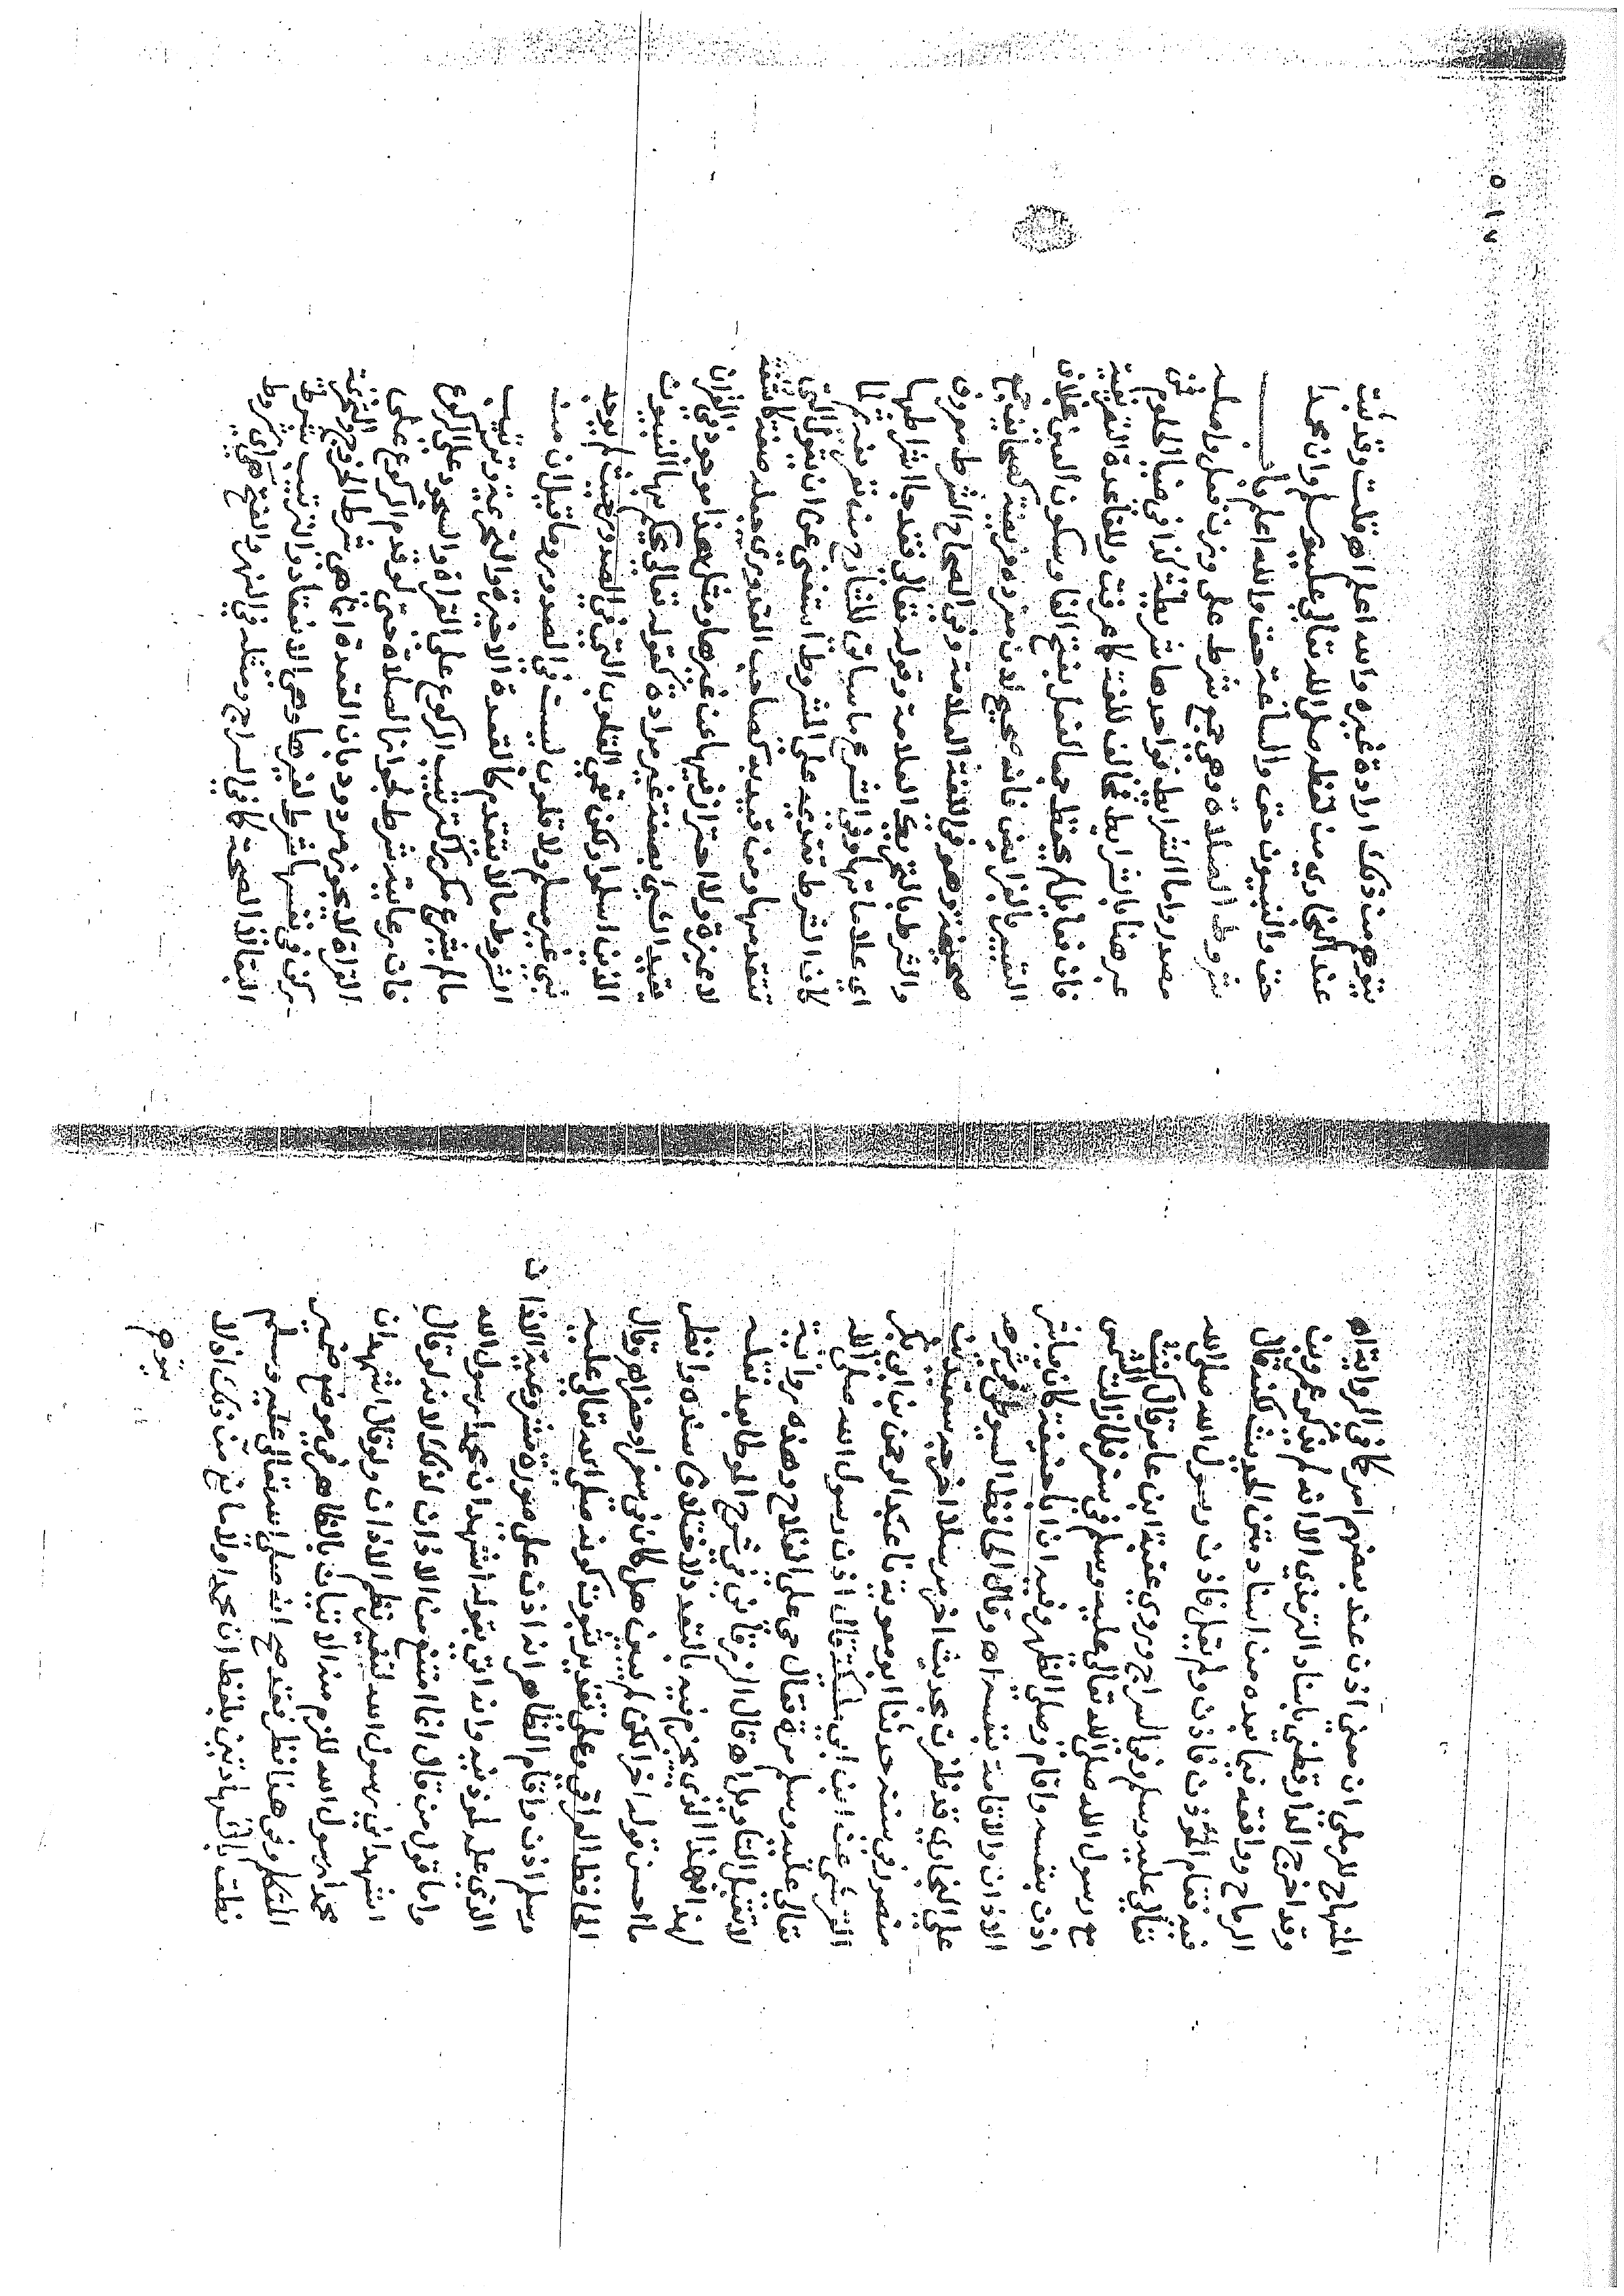 المنهاج للرملي ان معنى اذن عند بعضهم امر كما في الرواية اه
وقد اخرج الدارقطني باسناد الترمذي الا انه لم يذكر عمرو بن
الرماح ووافقه فيما بعده من اسناد ومتن الحديث لكنه قال
فيه فقام المؤذن فاذن ولم يقل فاذن رسول الله صلى الله
تعالى عليه وسلم وفي السراج وروى عقبة ابن عامر قال كنت
مع رسول الله صلى الله تعالى عليه وسلم في سفر فلما زالت الشمس
اذن بنفسه واقام وصلى الظهر وفيه ان ابا حنيفة كان يباشر
الاذان والاقامة بنفسه اه وقال الحافظ السيوطي في شرحه
على البخاري قد ظفرت بحديث اخر مرسلا اخرجه سعيد بن
منصور في سننه حدثنا ابو معوية نا عبد الرحمن بن ابي بكر
القرشي عن ابن ابي مليكة قال اذن رسول الله صلى الله
تعالى عليه وسلم مرة فقال حي على الفلاح وهذه رواية
لا تقبل التاويل اه قال الزرقاني في شرح الموطا بعد نقله
لهذا فهذا الذي يجزم فيه بالتعدد لاختلاف سنده وانظر
ما احسن قوله اخر لكن لم يبين هل كان في سفر او حضر اه وقال
الحافظ العراقي وعلى تقدير ثبوت كونه صلى الله تعالى عليه
وسلم اذن واقام الظاهر انه اذن على صورة مشروعية الاذان
الذي علمه لموذنيه وانه اتى بقوله اشهد ان محمدا رسول الله
واما قول من قال انما امتنع من الاذان لذلك لانه لو قال
اشهد اني رسول الله لتغير نظم الاذان ولو قال اشهد ان
محمدا رسول الله للزم منه الاتيان بالظاهر في موضع ضمير
المتكلم وفي هذا نظر فقد صح انه صلى الله تعالى عليه وسلم
نطق بالشهادتين بلفظ ان محمدا ولا مانع من ذلك اذ لا
يتوهم
يتوهم من ذلك ارادة غيره والله اعلم اه قلت وقد ثبت
عند البخاري من لفظه صلى الله تعالى عليه وسلم وان محمدا
حق والنبيون حق والساعة حق والله اعلم باب
شروط الصلاة وهي جمع شرط على وزن فعل واصله
مصدر واما الشرايط فواحدها شريطة كذا في ضياء الحلوم فمن
عبر هنا بالشرايط مخالف للغة كما عرفت وللقاعدة التصريفية
فان فعايل لم يحفظ جمعا لفعل بفتح الفا وسكون العين بخلاف
التعبير بالفرايض فانه صحيح لان مفرده فريضة كصحايف جمع
صحيفة وهو في اللغة العلامة وفي الصحاح الشرط معروف
والشرط بالتحريك العلامة وقوله تعالى فقد جا اشراطها
اي علاماتها وفي الشرع ما سياتي للشارح من تعريفه ولما
كان الشرط تقديمه على المشروط استغنى عن ان يقول التي
تتقدمها ومن قيد به كصاحب القدوري جعله صفة كاشفة
لا مميزة ولا احتراز فيها عن غيرها ومثل هذا موجود في القران
تقييد الشي بصفة غير مرادة كقوله تعالى يحكم بها النبيون
الذين اسلموا ولكن تعمى القلوب التي في الصدور حيث لم يوجد
نبي غير مسلم ولا قلوب ليست في الصدور وما قيل ان من
الشروط ما لا يتقدم كالقعدة الاخيرة والتحريمة وترتيب
ما لم يشرع مكررا كترتيب الركوع على القراة والسجود على الركوع
فان رعايته شرط لجواز الصلاة حتى لو قدم الركوع على
القراة لا يجوز مردود بان القعدة انما هي شرط الخروج والتحريمة
ركن في نفسها شرط لغيرها وهي الانعقاد والترتيب شرط
البقا لا الصحة كما في السراج ومثله في النهر والفتح